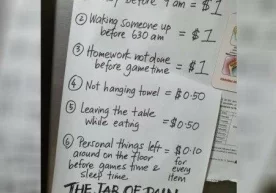 before 7am = $1
② Waking someone up
before 630am = $1
③ Homework not done
before game time = $1
④ Not hanging towel = $0.50
⑤ Leaving the table
while eating = $0.50
⑥ Personal things left = $0.10
around on the floor for
before games time & every
sleep time. item
THE JAR OF